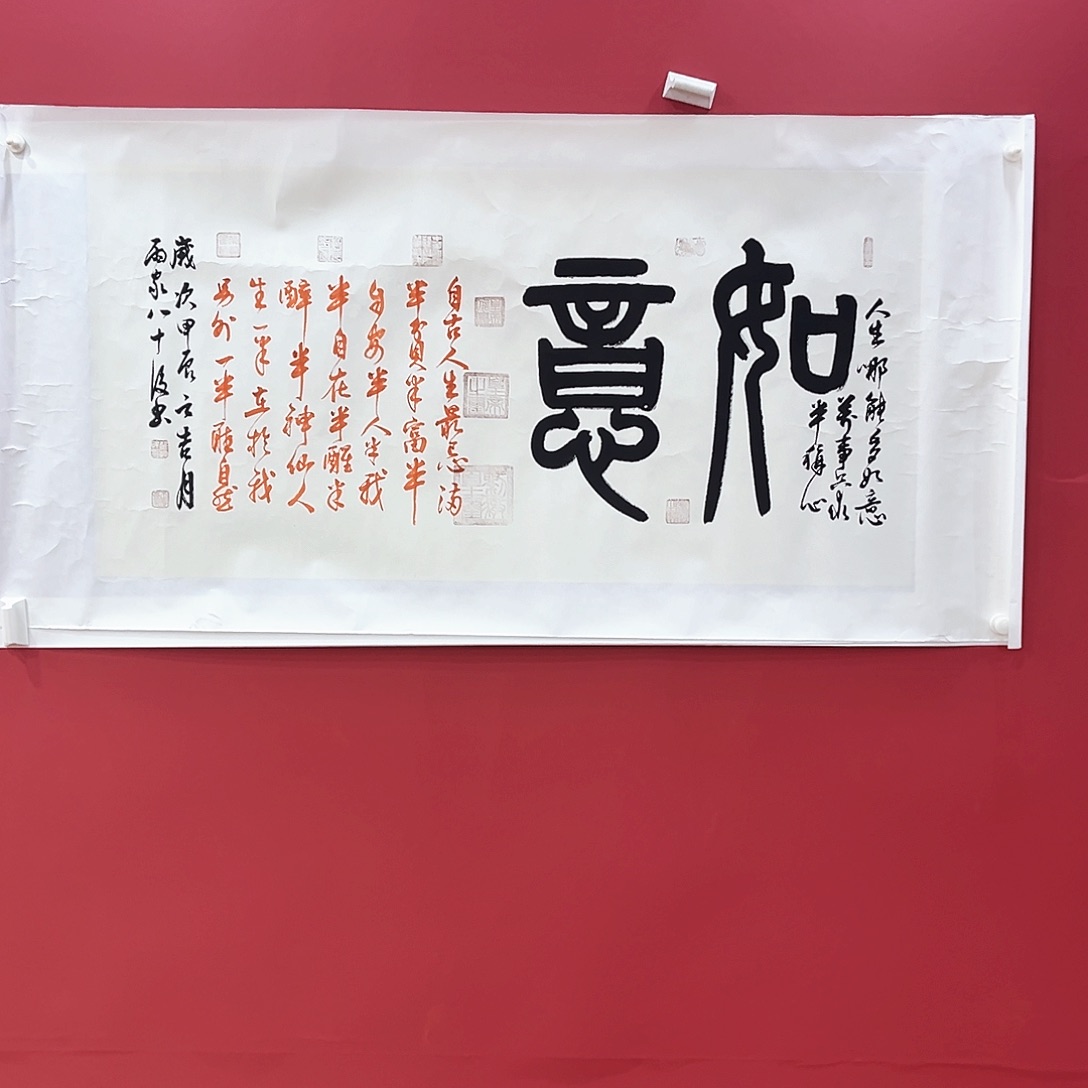 人生哪能多如意
萬事只求
半稱心
如意
自古人生最忌滿
半貧半富半
自安半人半我
半自在半醒半
醉半神仙人
生一半在於我
另外一半聽自然
歲次甲辰之吉月
八十後書